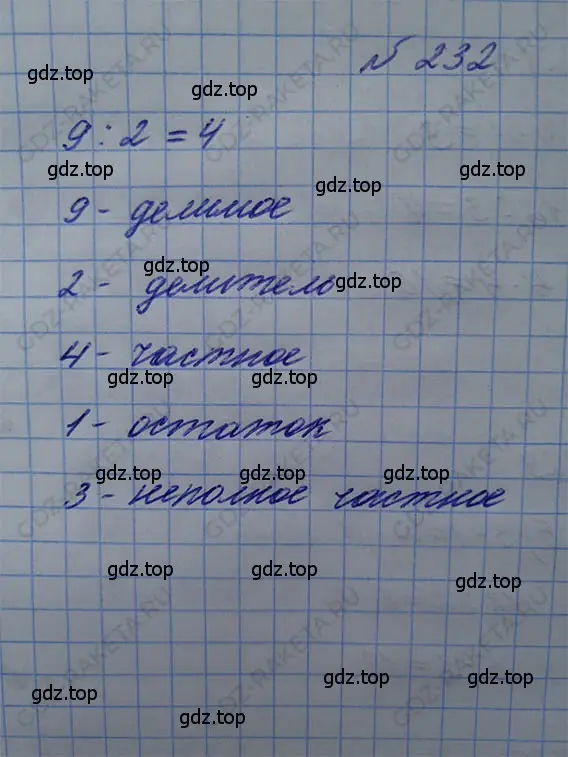 № 232
gdz.top gdz.top
9 : 2 = 4
gdz.top gdz.top gdz.top
9 - делимое
gdz.top gdz.top
2 - делитель
4 - частное
gdz.top gdz.top
1 - остаток
gdz.top gdz.top gdz.top
3 - неполное частное
gdz.top gdz.top gdz.top
gdz.top gdz.top
gdz.top gdz.top
GDZ-RAKETA.RU